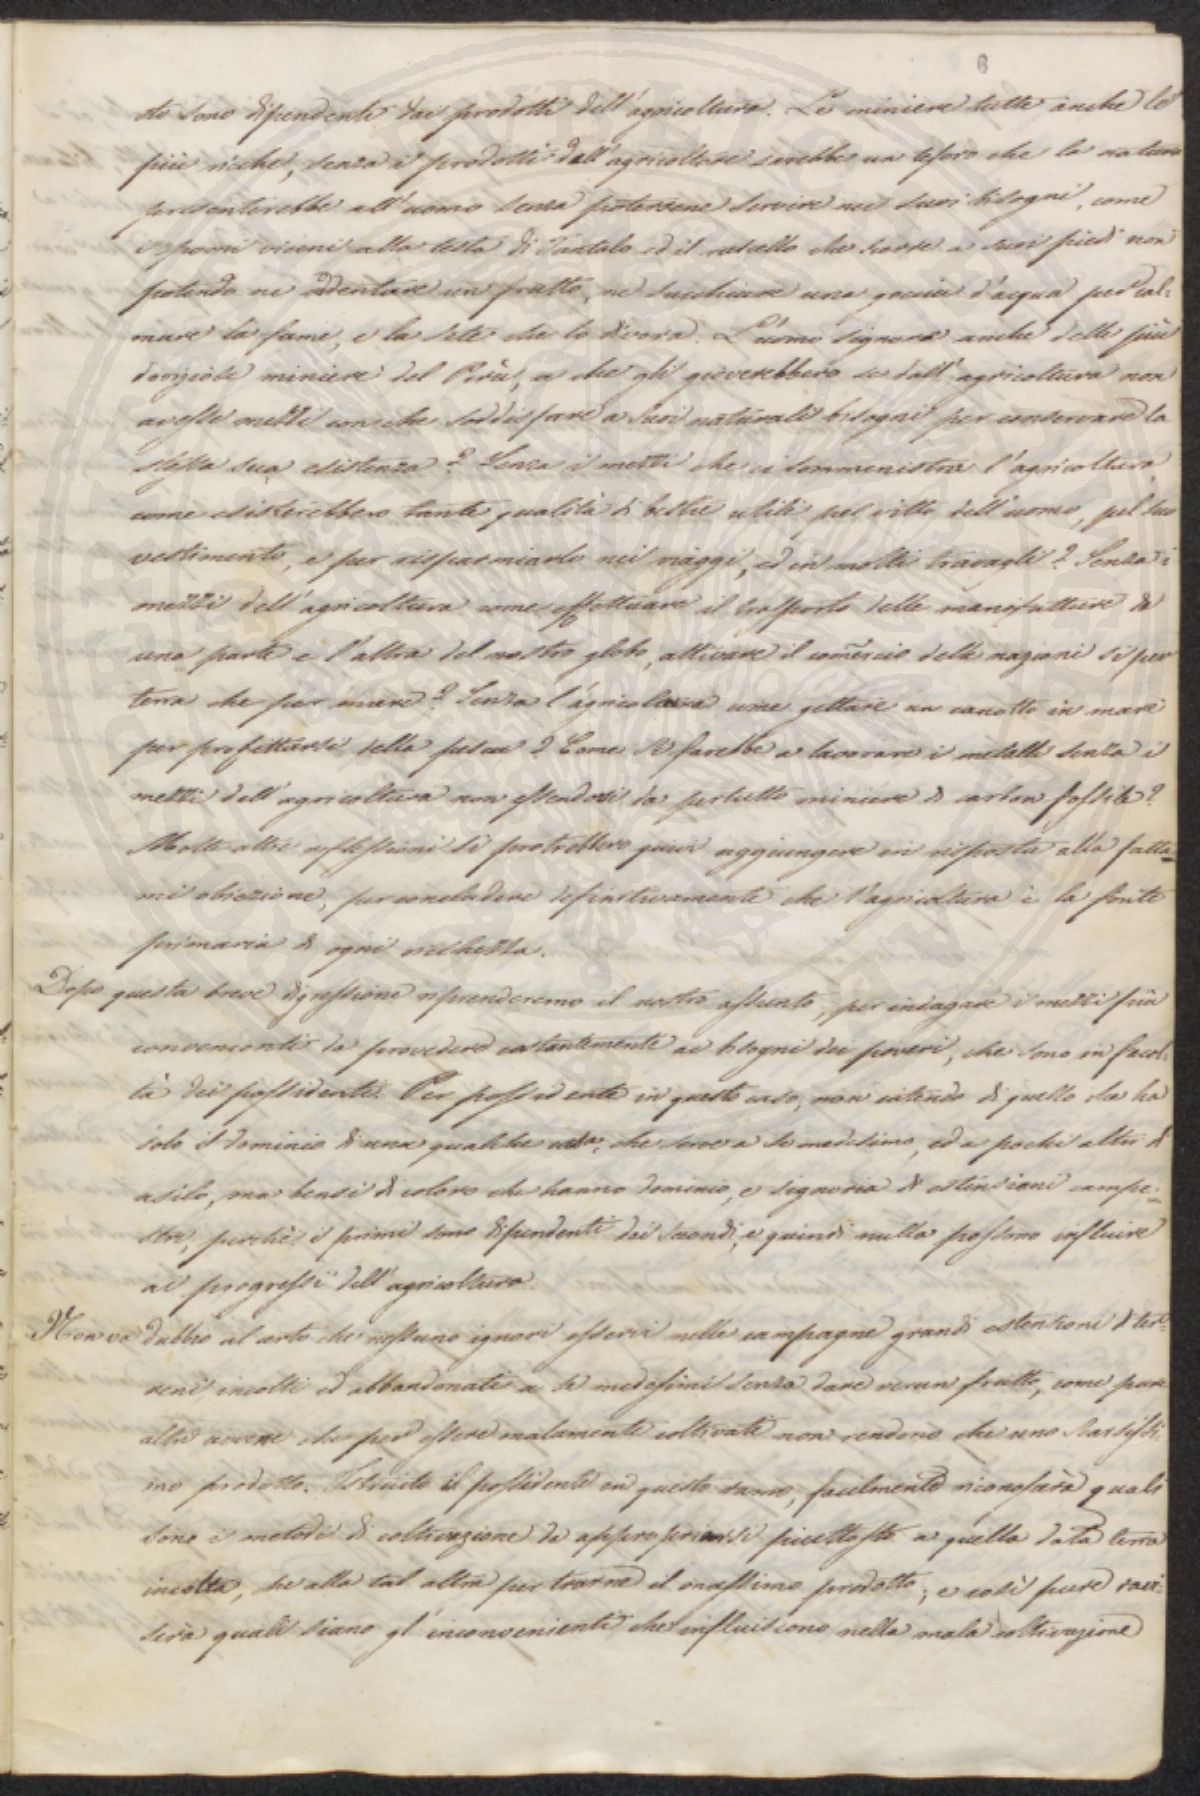 6
to sono dipendenti dai prodotti dell'agricoltura. Le miniere tutte anche le
più ricche, senza i prodotti dall'agricolture sarebbe un tesoro che la natura
presenterebbe all'uomo senza potersene servire nei suoi bisogni, come
i pomi vicini alla testa di Tantalo ed il ruscello che scorre a suoi piedi non
potendo ne addentare un frutto, ne succhiare una goccia d'acqua per cal-
mare la fame, e la sete che lo divora. L'uomo signore anche delle più
doviziose miniere del Perù, a che gli gioverebbero se dall'agricoltura non
avesse mezzi con che soddisfare a suoi naturali bisogni per conservare la
stessa sua esistenza? Senza i mezzi che ci somministra l'agricoltura,
come esisterebbero tante qualità di bestie utili pel vitto dell'uomo, pel suo
vestimento, e per risparmiarlo nei viaggi, ed in molti travagli? Senza i
mezzi dell'agricoltura come effettuare il trasporto delle manifatture da
una parte e l'altra del nostro globo, attivare il comercio delle nazioni si per
terra che per mare? Senza l'agricoltura come gettare un canotto in mare
per profittarsi della pesca? Come si farebbe a lavorare i metalli senza i
mezzi dell'agricoltura non essendovi da pertutto miniere di carbon fossile?
Molte altre riflessioni si protrebbero quivi aggiungere in risposta alla fatta-
mi obiezione, per concludere definitivamente che l'agricoltura è la fonte
primaria di ogni ricchezza.
Dopo questa breve digressione riprenderemo il nostro assunto, per indagare i mezzi più
convenienti da provedere costantemente ai bisogni dei poveri, che sono in facol-
tà dei possidenti. Per possidente in questo caso, non intendo di quello che ha
solo il dominio di una qualche casa, che serve a se medesimo, ed a pochi altri di
asilo, ma bensi di coloro che hanno dominio, e signoria di estensioni campe-
stri, perchè i primi sono dipendenti dai secondi, e quindi nulla possono influire
ai progressi dell'agricoltura.
Non va dubbio al certo che nessuno ignori esservi nelle campagne grandi estensioni di ter-
reni incolti ed abbandonati a se medesimi senza dare verun frutto, come pure
altri avene che per essere malamente coltivati non rendono che uno scarsissi-
mo prodotto. Istruito il possidente in questo ramo, facilmente riconoscerà quali
sono i metodi di coltivazione da appropriarsi piuttosto a quella data terra
incolta, che alla tal altra per trarne il massimo prodotto; e così pure ravi-
serà quali siano gl'inconvenienti che influiscono nella mala coltivazione